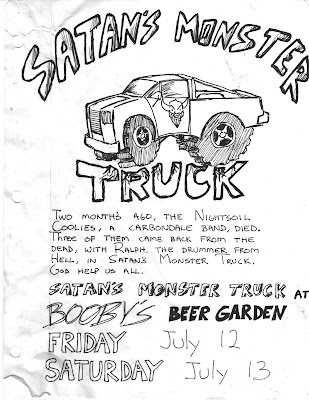 SATAN'S MONSTER
TRUCK
TWO MONTHS AGO, THE NIGHTSOIL
COOLIES, A CARBONDALE BAND, DIED.
THREE OF THEM CAME BACK FROM THE
DEAD, WITH RALPH, THE DRUMMER FROM
HELL, IN SATAN'S MONSTER TRUCK.
GOD HELP US ALL.
SATAN'S MONSTER TRUCK AT
BOOBY'S BEER GARDEN
FRIDAY July 12
SATURDAY July 13